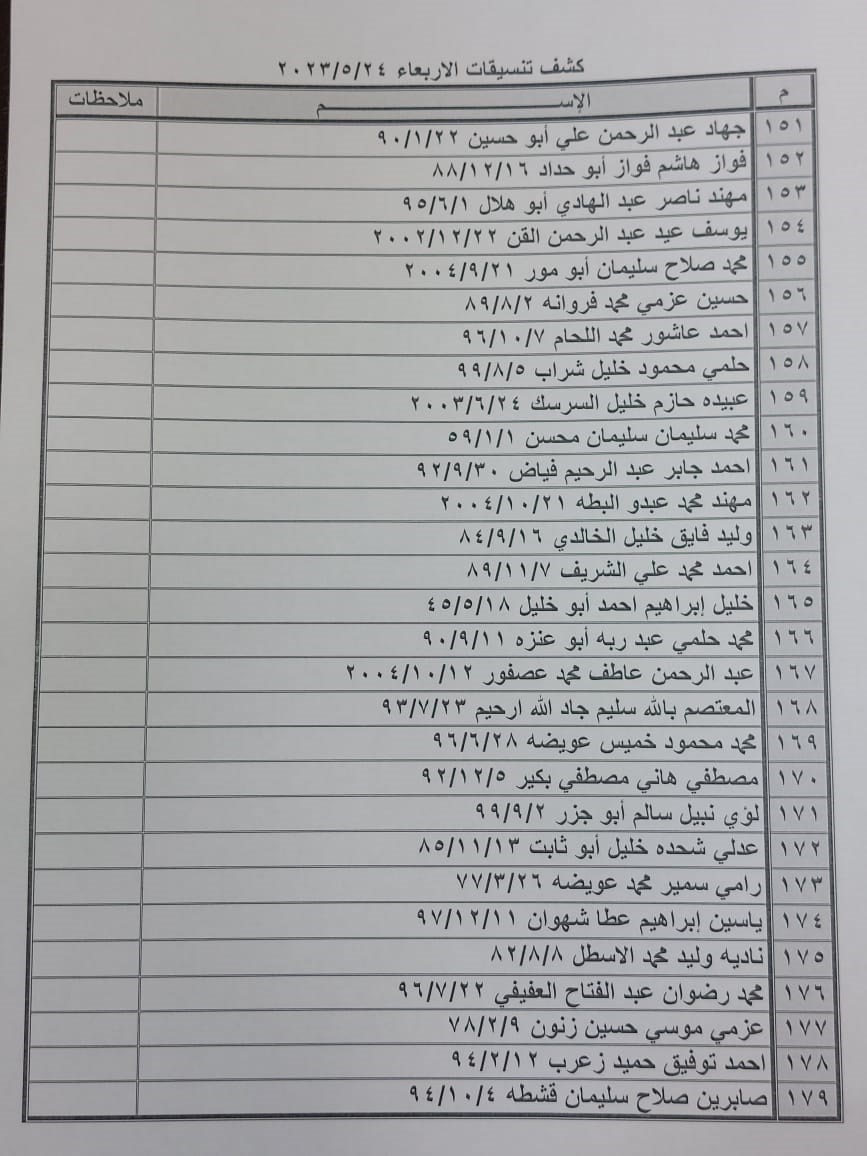 كشف تنسيقات الاربعاء ٢٠٢٣/٥/٢٤
م الإســـــــــم ملاحظات
١٥١ جهاد عبد الرحمن علي أبو حسين ٩٠/١/٢٢
١٥٢ فواز هاشم فواز أبو حداد ٨٨/١٢/١٦
١٥٣ مهند ناصر عبد الهادي أبو هلال ٩٥/٦/١
١٥٤ يوسف عيد عبد الرحمن القن ٢٠٠٢/١٢/٢٢
١٥٥ محمد صلاح سليمان أبو مور ٢٠٠٤/٩/٢١
١٥٦ حسين عزمي محمد فروانه ٨٩/٨/٢
١٥٧ احمد عاشور محمد اللحام ٩٦/١٠/٧
١٥٨ حلمي محمود خليل شراب ٩٩/٨/٥
١٥٩ عبيده حازم خليل السرسك ٢٠٠٣/٦/٢٤
١٦٠ محمد سليمان سليمان محسن ٥٩/١/١
١٦١ احمد جابر عبد الرحيم فياض ٩٢/٩/٣٠
١٦٢ مهند محمد عبدو البطه ٢٠٠٤/١٠/٢١
١٦٣ وليد فايق خليل الخالدي ٨٤/٩/١٦
١٦٤ احمد محمد علي الشريف ٨٩/١١/٧
١٦٥ خليل إبراهيم احمد أبو خليل ٤٥/٥/١٨
١٦٦ محمد حلمي عبد ربه أبو عنزه ٩٠/٩/١١
١٦٧ عبد الرحمن عاطف محمد عصفور ٢٠٠٤/١٠/١٢
١٦٨ المعتصم بالله سليم جاد الله ارحيم ٩٣/٧/٢٣
١٦٩ محمد محمود خميس عويضه ٩٦/٦/٢٨
١٧٠ مصطفي هاني مصطفي بكير ٩٢/١٢/٥
١٧١ لؤي نبيل سالم أبو جزر ٩٩/٩/٢
١٧٢ عدلي شحده خليل أبو ثابت ٨٥/١١/١٣
١٧٣ رامي سمير محمد عويضه ٧٧/٣/٢٦
١٧٤ ياسين إبراهيم عطا شهوان ٩٧/١٢/١١
١٧٥ ناديه وليد محمد الاسطل ٨٢/٨/٨
١٧٦ محمد رضوان عبد الفتاح العفيفي ٩٦/٧/٢٢
١٧٧ عزمي موسي حسين زنون ٧٨/٢/٩
١٧٨ احمد توفيق حميد زعرب ٩٤/٢/١٢
١٧٩ صابرين صلاح سليمان قشطه ٩٤/١٠/٤